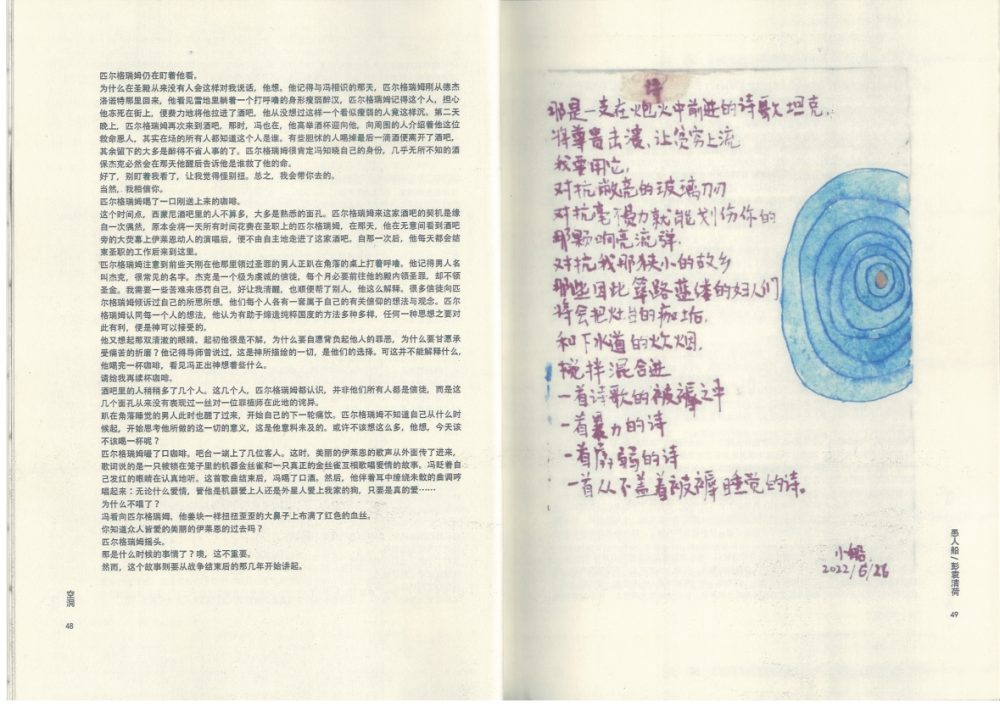 匹尔格瑞姆仍在盯着他看。
为什么在圣殿从来没有人会这样对我说话，他想。他记得与冯相识的那天，匹尔格瑞姆刚从德杰
洛诺特那里回来，他看见雪地里躺着一个打呼噜的身形瘦弱醉汉，匹尔格瑞姆记得这个人，担心
他冻死在街上，便费力地将他拉进了酒吧，他从没想过这样一个看似瘦弱的人竟这样沉。第二天
晚上，匹尔格瑞姆再次来到酒吧，那时，冯也在，他高举酒杯迎向他，向周围的人介绍着他这位
救命恩人，其实在场的所有人都知道这个人是谁。有些胆怵的人喝掉最后一滴酒便离开了酒吧，
其余留下的大多是醉得不省人事的了。匹尔格瑞姆很肯定冯知晓自己的身份，几乎无所不知的酒
保杰克必然会在那天他醒后告诉他是谁救了他的命。
好了，别盯着我看了，让我觉得怪别扭。总之，我会带你去的。
当然，我相信你。
匹尔格瑞姆喝了一口刚送上来的咖啡。
这个时间点，西蒙尼酒吧里的人不算多，大多是熟悉的面孔。匹尔格瑞姆来这家酒吧的契机是缘
自一次偶然，原本会将一天所有时间花费在圣职上的匹尔格瑞姆，在那天，他在无意间看到酒吧
旁的大荧幕上伊莱恩动人的演唱后，便不由自主地走进了这家酒吧。自那一次后，他每天都会结
束圣职的工作后来到这里。
匹尔格瑞姆注意到前些天刚在他那里领过圣罪的男人正趴在角落的桌上打着呼噜。他记得男人名
叫杰克，很常见的名字。杰克是一个极为虔诚的信徒，每个月必要前往他的殿内领圣罪，却不领
圣金。我需要一些苦难来惩罚自己，好让我清醒，也顺便帮了别人，他这么解释。很多信徒向匹
尔格瑞姆倾诉过自己的所思所想，他们每个人各有一套属于自己的有关信仰的想法与观念。匹尔
格瑞姆认同每一个人的想法，他认为有助于缔造纯粹国度的方法多种多样，任何一种思想之要对
此有利，便是神可以接受的。
他又想起那双清澈的眼睛，起初他很是不解，为什么要自愿背负起他人的罪恶，为什么要甘愿承
受痛苦的折磨？他记得导师曾说过，这是神所描绘的一切，是他们的选择。可这并不能解释什么，
他喝完一杯咖啡，看见冯正出神想着些什么。
请给我再续杯咖啡。
酒吧里的人稍稍多了几个人。这几个人，匹尔格瑞姆都认识，并非他们所有人都是信徒，而是这
几个面孔从来没有表现过一丝对一位罪植师在此地的诧异。
趴在角落睡觉的男人此时也醒了过来，开始自己的下一轮痛饮。匹尔格瑞姆不知道自己从什么时
候起，开始思考他所做的这一切的意义，这是他意料未及的。或许不该想这么多，他想，今天该
不该喝一杯呢？
匹尔格瑞姆嘬了口咖啡。吧台一端上了几位客人。这时，美丽的伊莱恩的歌声从外面传了进来，
歌词说的是一只被锁在笼子里的机器金丝雀和一只真正的金丝雀互相歌唱爱情的故事。冯眨着自
己发红的眼睛在认真地听。这首歌曲结束后，冯喝了口酒。然后，他伴着耳中缭绕未散的曲调哼
唱起来：无论什么爱情，管他是机器爱上人还是外星人爱上我家的狗，只要是真的爱……
为什么不唱了？
冯看向匹尔格瑞姆，他姜块一样扭扭歪歪的大鼻子上布满了红色的血丝。
你知道众人皆爱的美丽的伊莱恩的过去吗？
匹尔格瑞姆摇头。
那是什么时候的事情了？噢，这不重要。
然而，这个故事则要从战争结束后的那几年开始讲起。
空洞
48
诗
那是一支在炮火中前进的诗歌坦克，
将尊贵击溃，让贫穷上流
我要用它，
对抗敞亮的玻璃刀刃
对抗毫不费力就能划伤你的
那颗响亮流弹，
对抗我那狭小的故乡
那些因此筚路蓝缕的妇人们
将会把灶台的痂垢，
和下水道的炊烟，
搅拌混合进
一首诗歌的被褥之中
一首暴力的诗
一首孱弱的诗
一首从不盖着被褥睡觉的诗。
小船
2022/6/26
愚人船/彭袁清荷
49